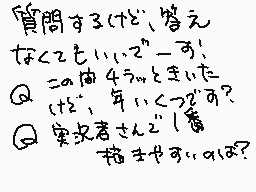 質問するけど、答え
なくてもいいでーす!
Q この前4ラッときいた
けど、年いくつです?
Q 実況者さんで1番
描きやすいのは?